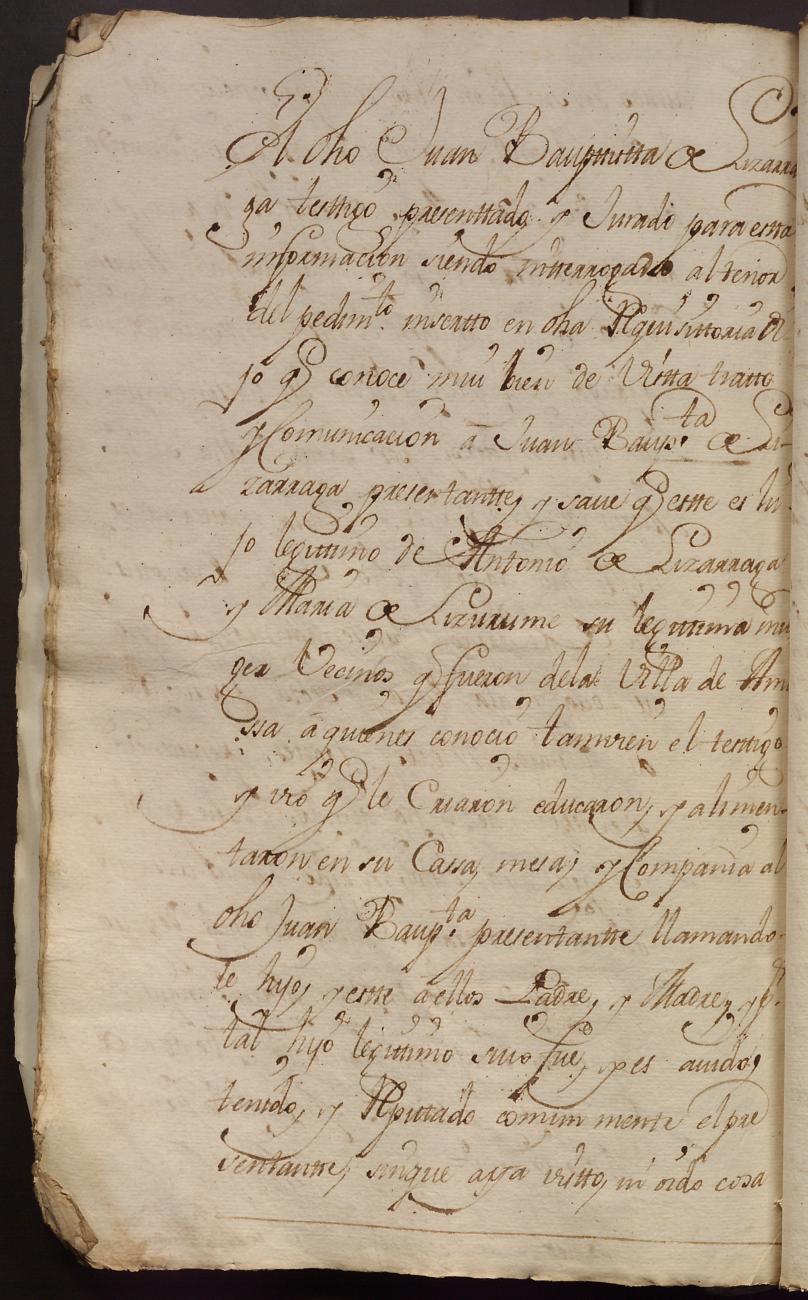 El dho Juan Bauptista de Lizarra
ga testtigo presenttado, y Jurado para esta
informacion siendo intterrogado al tenor
del pedimto. insertto en dha Rquisittoria di
jo q conoce mui bien de Vistta tratto
y Comunicacion â Juan Baupta de Li-
zarraga presentantte, y save q estte es hi
jo legitimo de Antonio de Lizarraga
y Maria de Lizurume su legitima mu
ger Vecinos q fueron dela Villa de Ame
ssa â quienes conoció tamvien el testtigo
y vio q le Criaron educaron, y alimen-
taron en su Cassa, mesa, y Compania al
dho Juan Baupta presentantte llamando-
le hijo, y estte â ellos Padre, y Madre, y p.r
tal hijo legitimo suio fue, y es auido,
tenido, y Rputado comun mente el pre
sentantte, sin que aya vistto, ni oido cosa